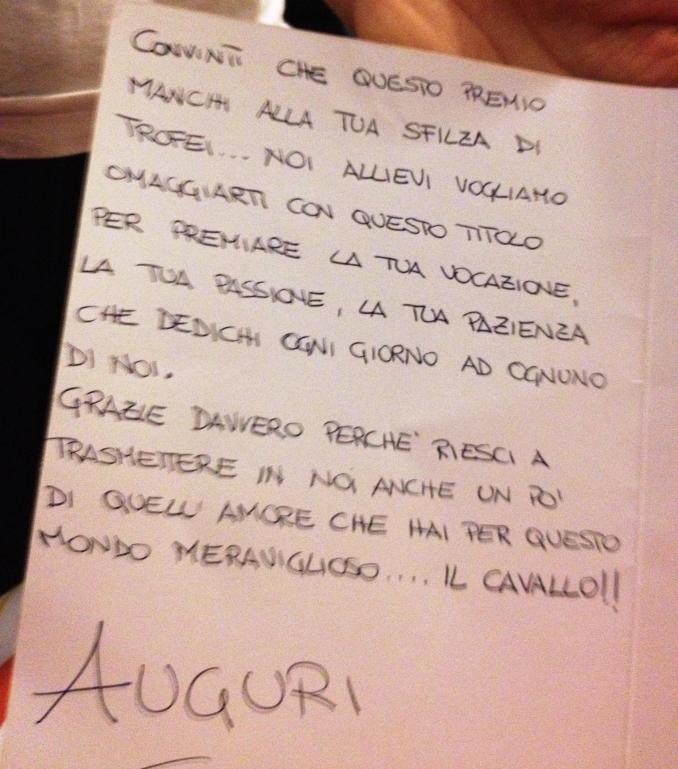 CONVINTI CHE QUESTO PREMIO
MANCHI ALLA TUA SFILZA DI
TROFEI... NOI ALLIEVI VOGLIAMO
OMAGGIARTI CON QUESTO TITOLO
PER PREMIARE LA TUA VOCAZIONE,
LA TUA PASSIONE, LA TUA PAZIENZA
CHE DEDICHI OGNI GIORNO AD OGNUNO
DI NOI.
GRAZIE DAVVERO PERCHE' RIESCI A
TRASMETTERE IN NOI ANCHE UN PO'
DI QUELL' AMORE CHE HAI PER QUESTO
MONDO MERAVIGLIOSO.... IL CAVALLO!!
AUGURI